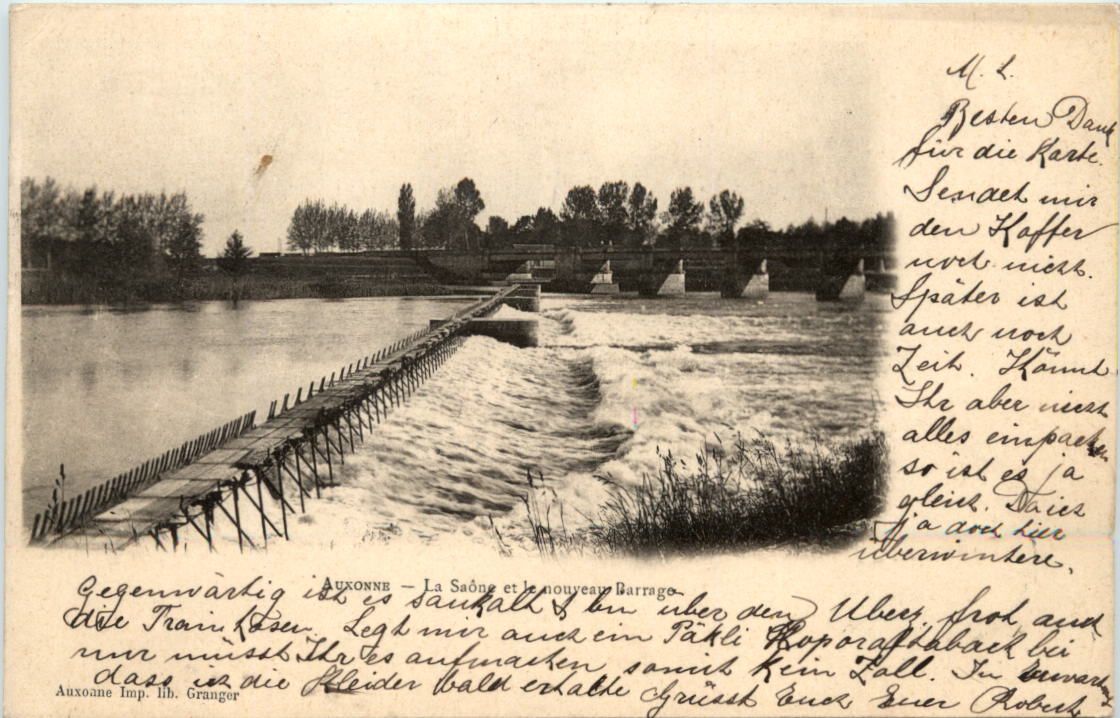 M. L.
Besten Dank
für die Karte.
Sendet mir
den Koffer
noch nicht.
Später ist
auch noch
Zeit. Könnt
Ihr aber nicht
alles einpacken
so ist es ja
gleich. Da ich
ja doch hier
überwintere.
AUXONNE — La Saône et le nouveau Barrage
Gegenwärtig ist es saukalt & bin über den Überz. froh, auch
die Train Hosen. Legt mir auch ein Päkli Koporaltaback bei
nur müsst Ihr es aufmachen somit kein Zoll. In
dass ich die Kleider bald erhalte Grüsst Euch Euer Robert
Auxonne Imp. lib. Granger